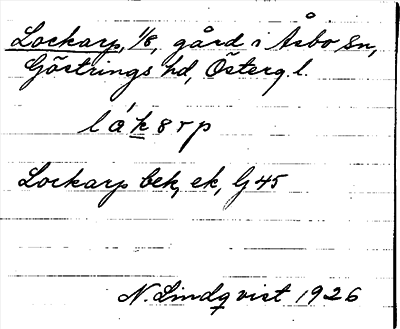 Lockarp, 1/8, gård i Åsbo sn,
Göstrings hd, Österg. l.
lák8rp
Lockarp bek, ek, G45
N. Lindqvist 1926